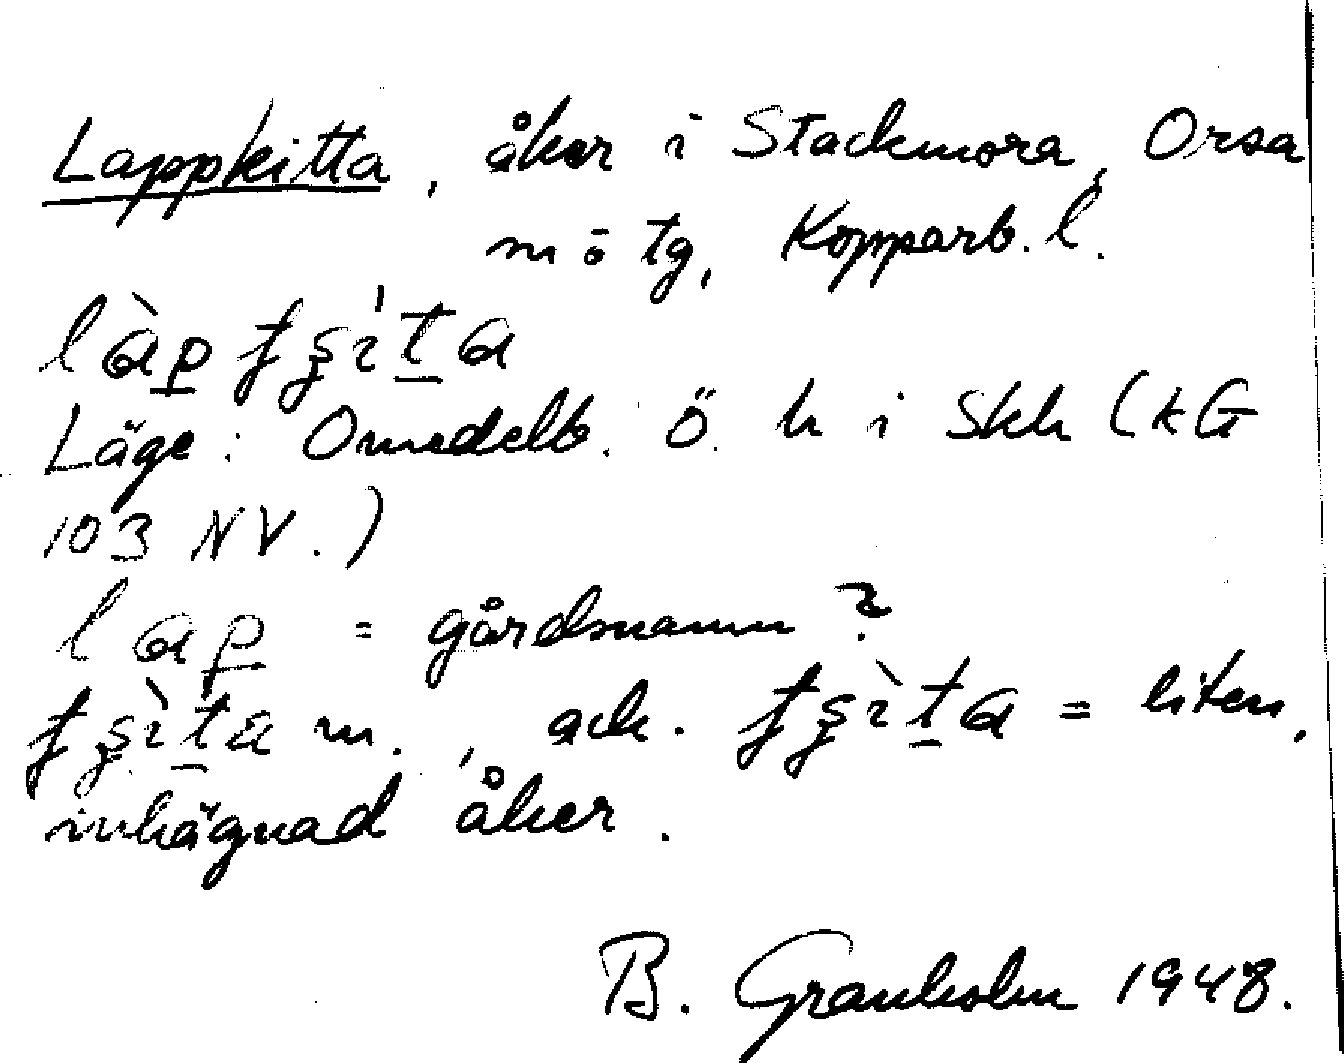 Lappkitta, åker i Stackmora, Orsa
m ö tg, Kopparb. l.
làp̲ ʄʂı̍t̲a
Läge: Omedelb. ö. h i Skh (kG
103 NV.)
lap̲ = gårdsnamn?
ʄʂı̀t̲a m., ack. ʄʂı̀t̲a = liten,
inhägnad åker.
B. Granholm 1948.